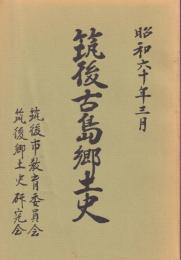 昭和六十年三月
筑後古島郷土史
筑後市教育委員会
筑後郷土史研究会